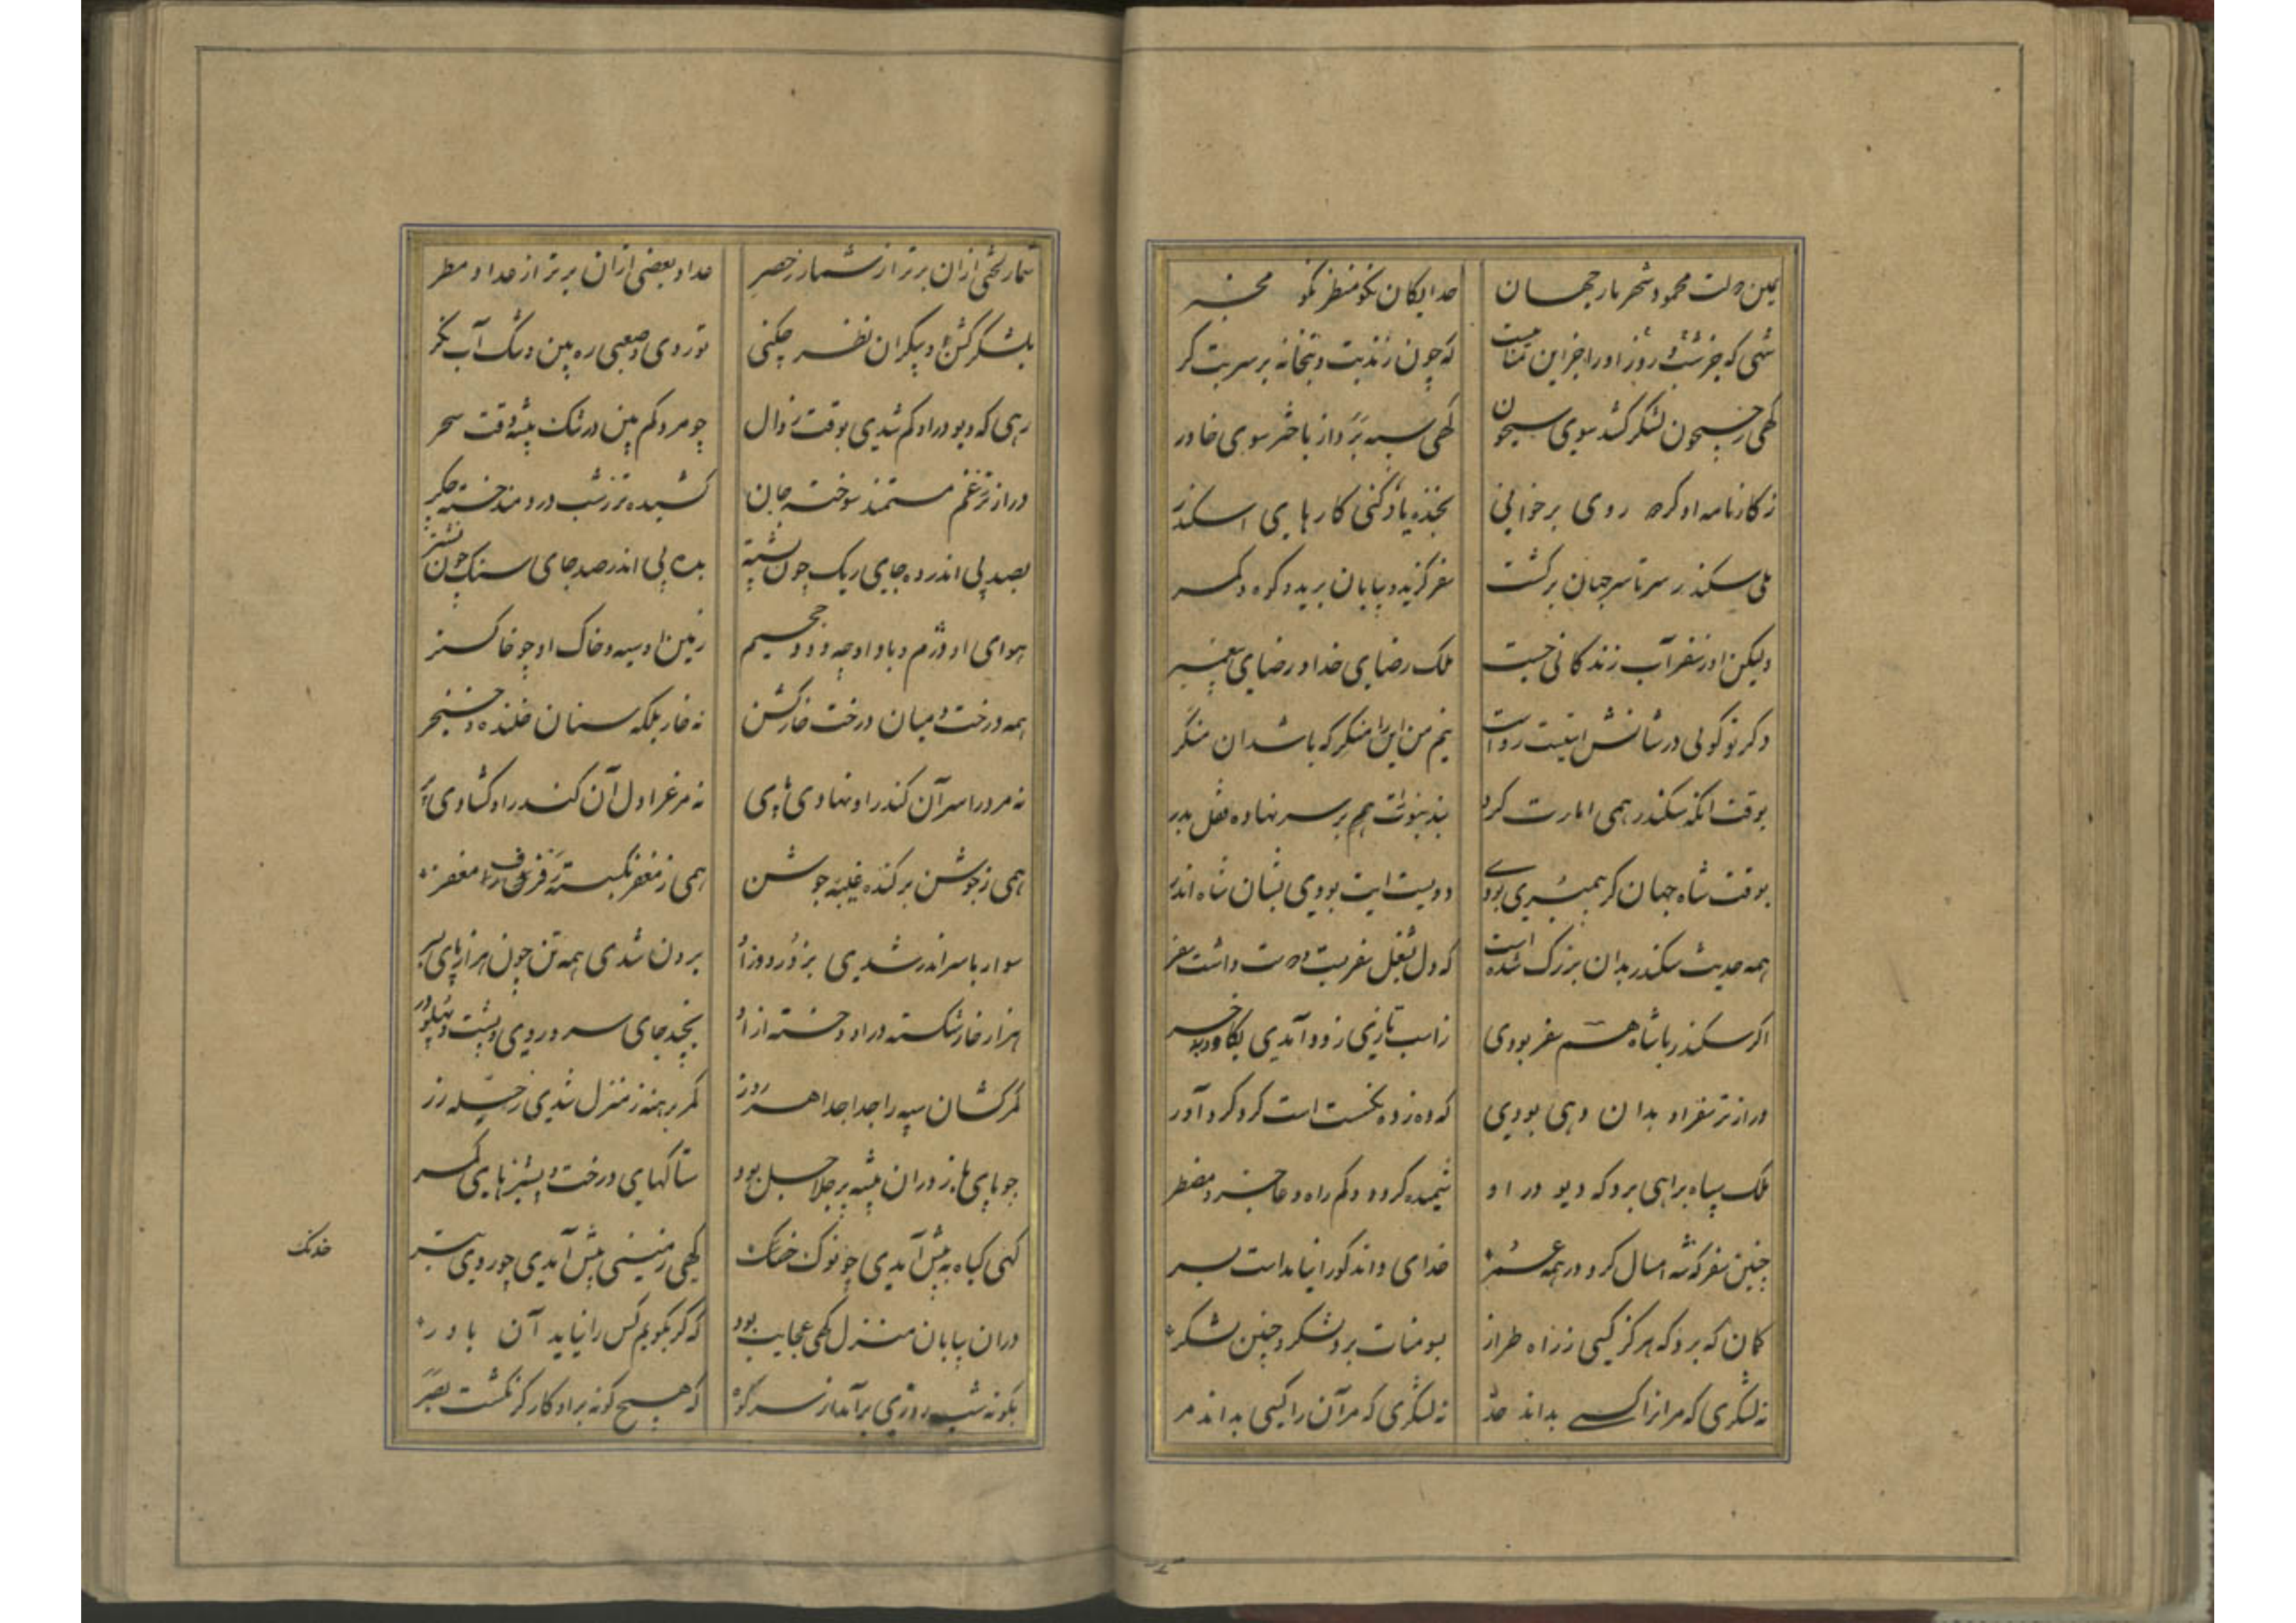 یمین دولت محمود شهریار جهان خدایکان نکو منظر نکو مخبر
شهی که جز شب و روز اورا جز این تمنا نیست که چون زند بت و بتخانه بر سر بت کر
کهی ز جیحون لشکر کشد سوی سیحون کهی سپه برد از باختر سوی خاور
ز کارنامه او کر دو روی برخوانی بخنده یاد کنی کارهای اسکندر
بلی سکندر سرتاسر جهان برکشت سفر کزید و بیابان برید و کوه و کمر
ولیکن او ز سفر آب زندکانی جست ملک رضای خدا و رضای پیغمبر
و کر تو کوئی در شانش آیتست رواست نیم من این را منکر که باشد آن منکر
بوقت آنکه سکندر همی امارت کرد نبد نبوت را هم بر سر نهاده قفل بدر
بوقت شاه جهان کر همبری بودی دویست آیت بودی بشان شاه اندر
همه حدیث سکندر بدان بزرک شده است که دل بشغل سفر بست و دوست داشت سفر
اکر سکندر با شاه هم سفر بودی ز اسب تازی زود آمدی بکاو و بخر
درازتر سفر او بدان رهی بودی که ده ز ده نکسست است کرد کرد آور
ملک سپاه براهی برد که دیو در او شمیده کردد و کم راه و عاجز و مضطر
چنین سفر که شه امسال کرد در همه عمر خدای داند کو را نیامد است بسر
کمان که برد که هرکز کسی ز راه طراز بسومنات برد لشکر و چنین لشکر
نه لشکری که مر انرا کسی بداند حد نه لشکری که مر آن را کسی بداند مر
شمار لختی از آن برتر از شمار حصر عداد بعضی از آن برتر از عداد مطر
بلشکر کشن و بیکران نظر چکنی تو روی صعبی ره بین و تنک آب نکر
رهی که دیو در او کم شدی بوقت زوال چو مرد کم بین در تنک بیشه وقت سحر
درازتر ز غم مستمند سوخته جان کشیده تر ز شب دردمند خسته جکر
بصد پی اندر ده جای ریک چون بده پی اندر صد جای سنک چون نشتر
هوای او دژم و باد او چو دود جحیم زمین او سیه و خاک او چو خاکستر
همه درخت و میان درخت خار کشن نه خار بلکه سنان خلنده و خنجر
نه مرد را سر آن کاندر او نهادی پی نه مرغ را دل آن کاندر او کشادی پر
همی ز جوشن برکند غیبه جوشن همی ز مغفر بکسست رفرف مغفر
سوار با سر اندر شدی بدو و از او برون شدی همه تن چون هزارپای بسر
هزار خار شکسته در او و خسته از او بچند جای سر و روی و پشت و پهلو و بر
کمرکشان سپه را جدا جدا هر روز کمر برهنه ز منزل شدی ز حلیه زر
چو پای باز در آن بیشه پر جلاجل بود ستاکهای درخت و پشیزهای کمر
کهی کیاه به پیش آمدی چو نوک خدنک کهی زمینی پیش آمدی چو روی تبر
در آن بیابان منزل کهی عجایب بود که کر بکویم کس را نیاید آن باور
بکونه شب روزی برآمد از سر کوه که هیچ کونه بر او کارکر نکشت بصر
خدنک